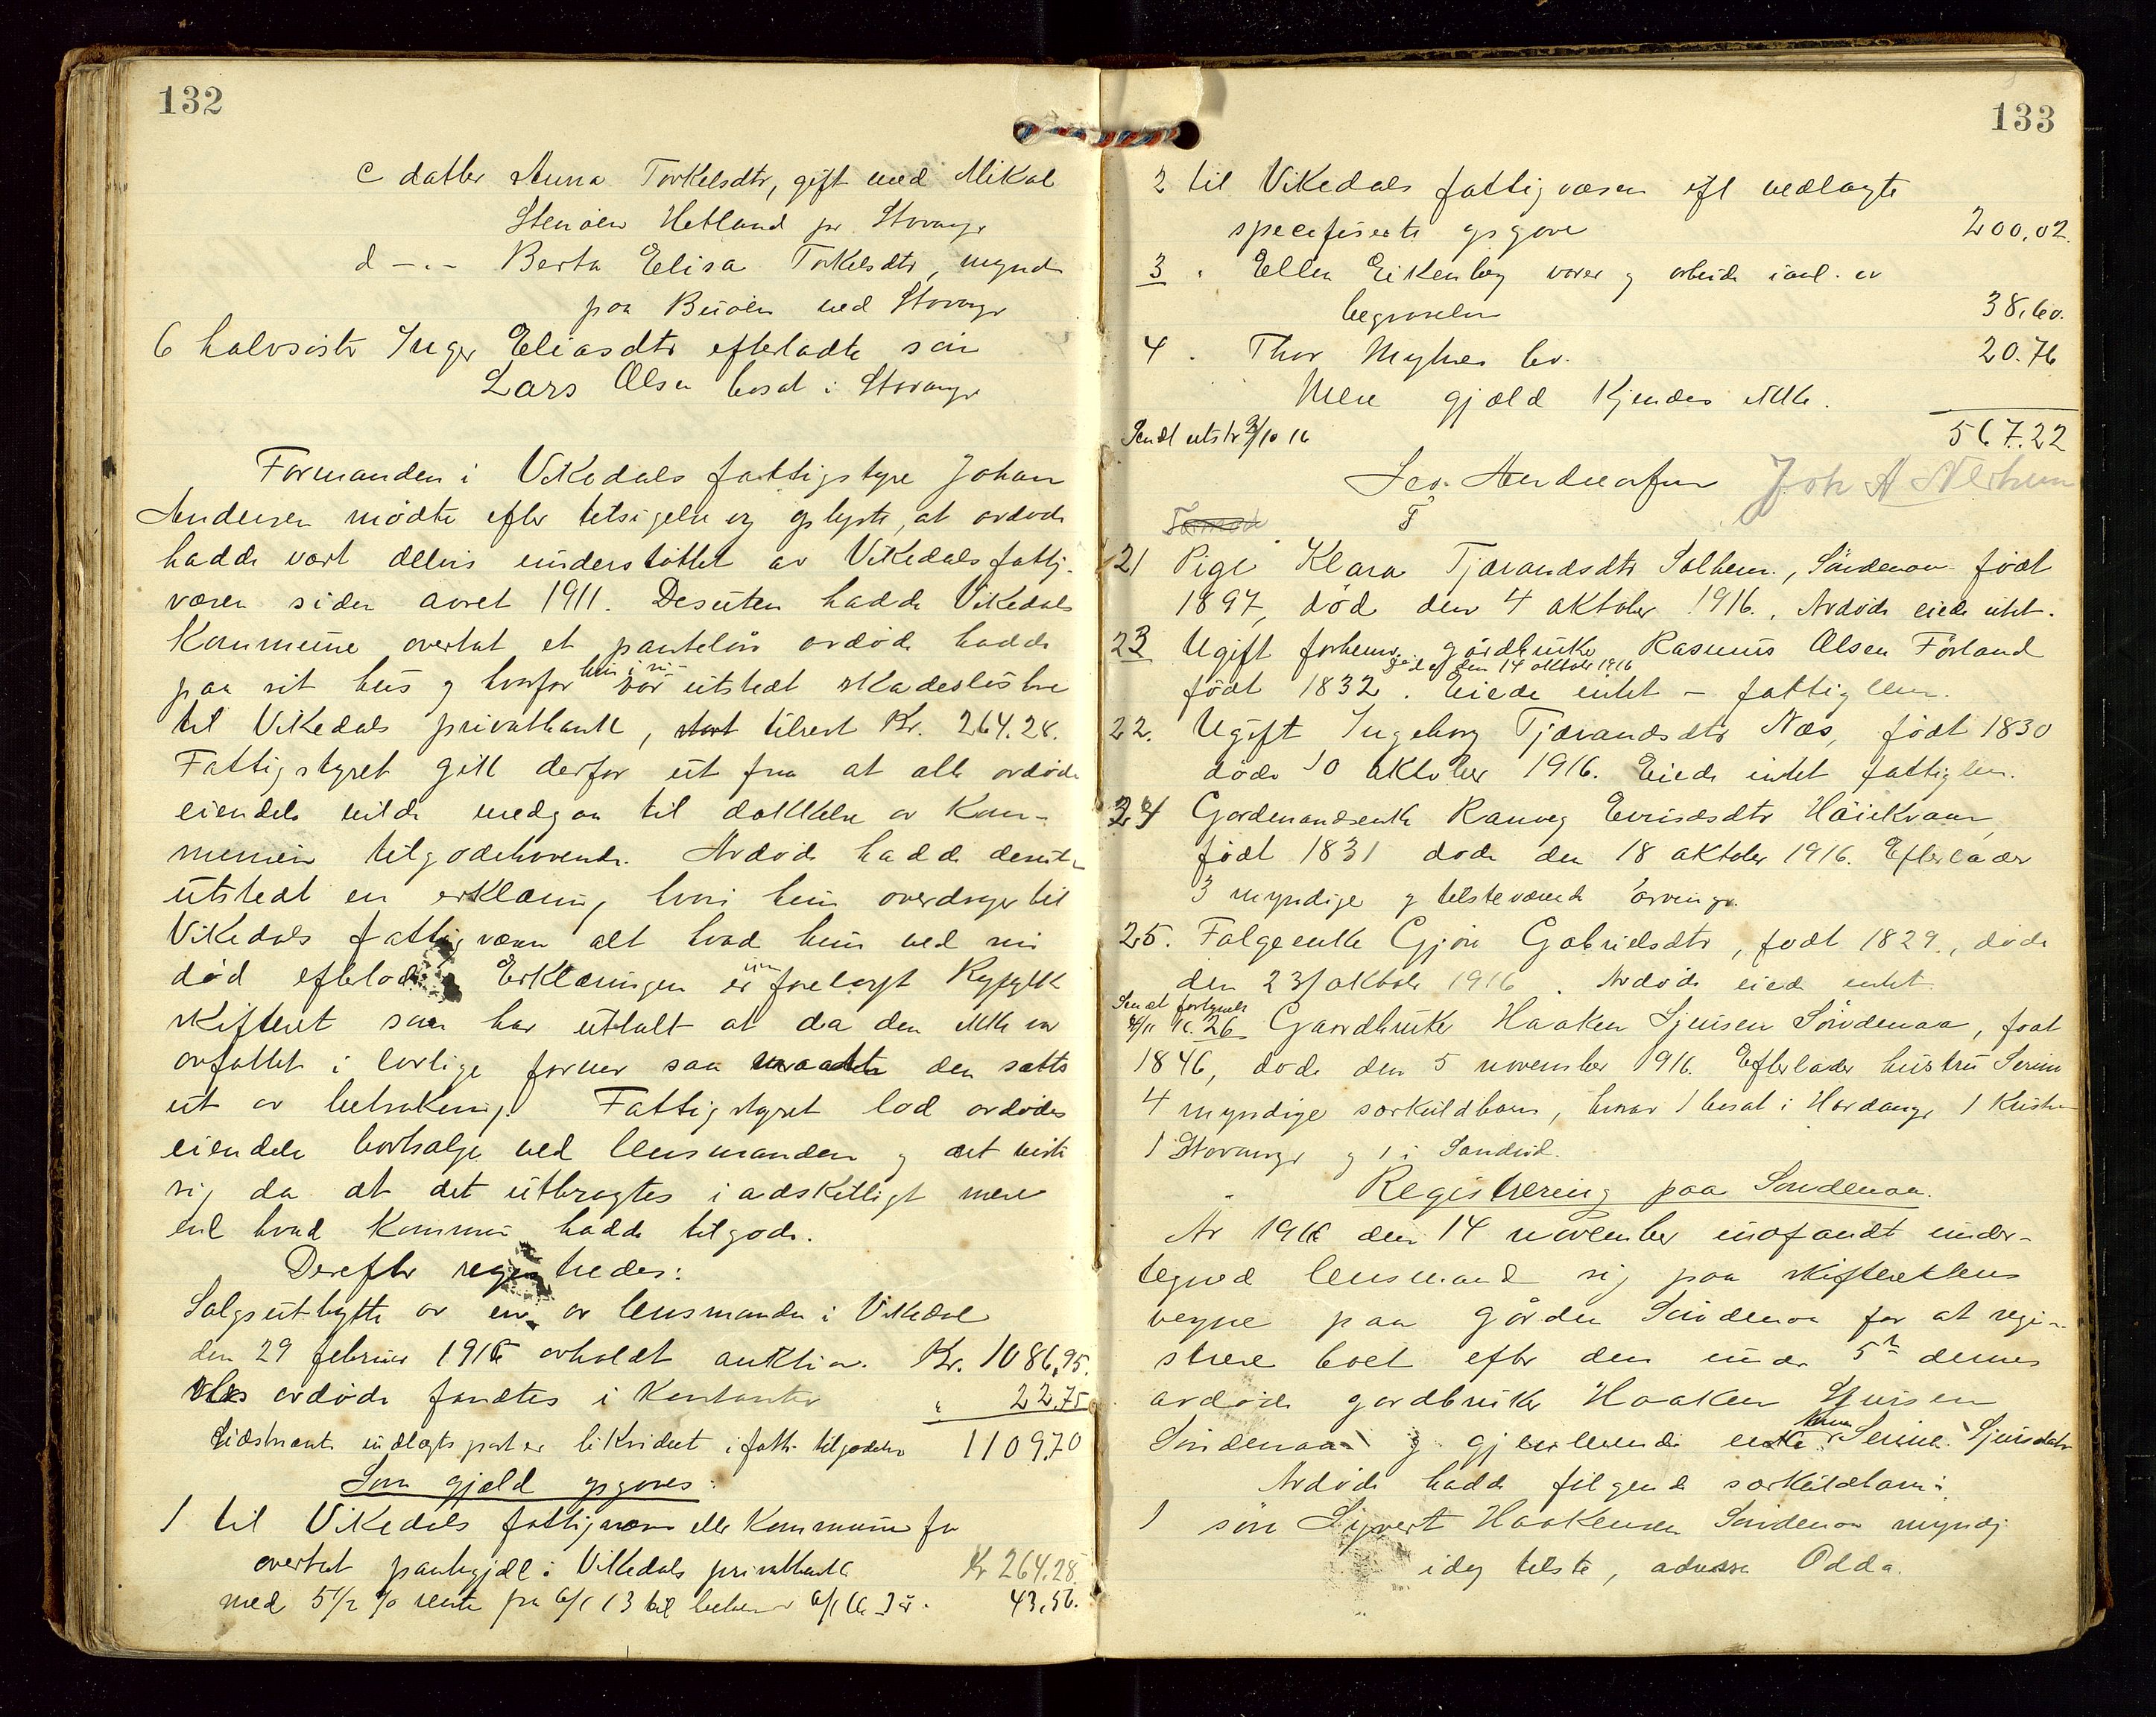 132
c datter Anna Torkelsdtr, gift med Mikal
Stenøen Hetland pr Stavanger
d -"- Berta Elisa Torkelsdtr, myndig
paa Buøen ved Stavanger
6 halvsøster Inger Eliasdtr efterladte søn
Lars Olsen bosat i Stavanger
Formanden i Vikedals fattigstyre Johan
Andersen mødte efter tilsigelse og oplyste, at avdøde
hadde vært delvis understøttet av Vikedals fattig-
væsen siden aaret 1911. Desuten hadde Vikedals
Kommune overtat et pantelån avdøde hadde
paa sit hus og hvorfor hun i sin var utstedt skadesløsbrev
til Vikedals privatbank, stort tilrest Kr. 264.28.
Fattigstyret gikk derfor ut fra at alle avdødes
eiendele vilde medgaa til dækkelse av Kom-
munens tilgodehavende. Avdøde hadde desuten
utstedt en erklæring, hvori hun overdrager til
Vikedals fattigvæsen alt hvad hun ved sin
død efterlod. Erklæringen er forelagt Ryfylke
skifteret som har uttalt at da den ikke var
avfattet i lovlige former saa maatte den sættes
ut av betrakning. Fattigstyret lod avdødes
eiendele bortsælge ved lensmanden og det viste
sig da at det utbragtes i adskilligt mere
end hvad Kommunen hadde tilgode.
Derefter registredes:
Salgsutbytte av en av lensmanden i Vikedal
den 29 februar 1916 avholdt auktion. Kr. 1086,95.
Hos avdøde fandtes i Kontanter " 22,75
Sidstnævnte indlagts post er likvidert i fatt. tilgodeh. 1109,70
Som gjæld opgaves:
1 til Vikedals fattigvæsen eller Kommune for
overtat pantegjæld i Vikedals privatbank Kr 264.28.
med 5½ % rente fra 6/1 13 til 6/1 16 3 år. 43,56.
133
2 til Vikedals fattigvæsen efl vedlagte
specifiserte opgave 200,02.
3 " Ellen Eikenberg varer og arbeide i anl. av
begravelsen 38,60.
4 . Thor Myhres lev. 20.76
Mere gjæld Kjendes ikke.
Sendt utskr /10 16 567.22
Sev. Andreassen Joh A
21 Pige Klara Tjærandsdtr Solheim, Søndenaa født
1897, død den 4 oktober 1916., Avdøde eiede intet.
23 Ugift forhenv. gårdbruker Rasmus Olsen Førland
død den 14 oktober 1916
født 1832. Eiede intet - fattiglem.
22. Ugift Ingeborg Tjærandsdtr Næs, født 1830
døde 10 oktober 1916. Eiede intet fattiglem.
24 Gardmandsenke Ranveg Eeriasdtr Høiekvam,
født 1831 døde den 18 oktober 1916. Efterlader
3 myndige og tilstedeværende arvinger.
25. Folgeenke Gjøri Gabrielsdtr, født 1829., døde
den 23/ oktober 1916. Avdøde eied intet.
Sendt
/11 16. 26 Gaardbruker Haaken Sjursen Søndenaa, født
1846, døde den 5 november 1916. Efterlader hustru Serine
4 myndige særkuldbarn, hvorav 1 bosat i Hardanger 1 Kristia
1 Stavanger og 1 i Sandeid.
Registrering paa Søndenaa.
Ar 1916 den 14 november indfandt under-
tegned lensmand sig paa skifterettens
vegne paa gården Søndenaa for at regi-
strere boet efter den under 5te dennes
avdøde gardbruker Haaken Sjursen
Søndenaa og gjenlevende enke Serine Sjursdatr
Avdøde hadde følgende særkuldbarn:
1 søn Syvert Haakensen Søndenaa myndig
idag tilstede, adresse Odda.